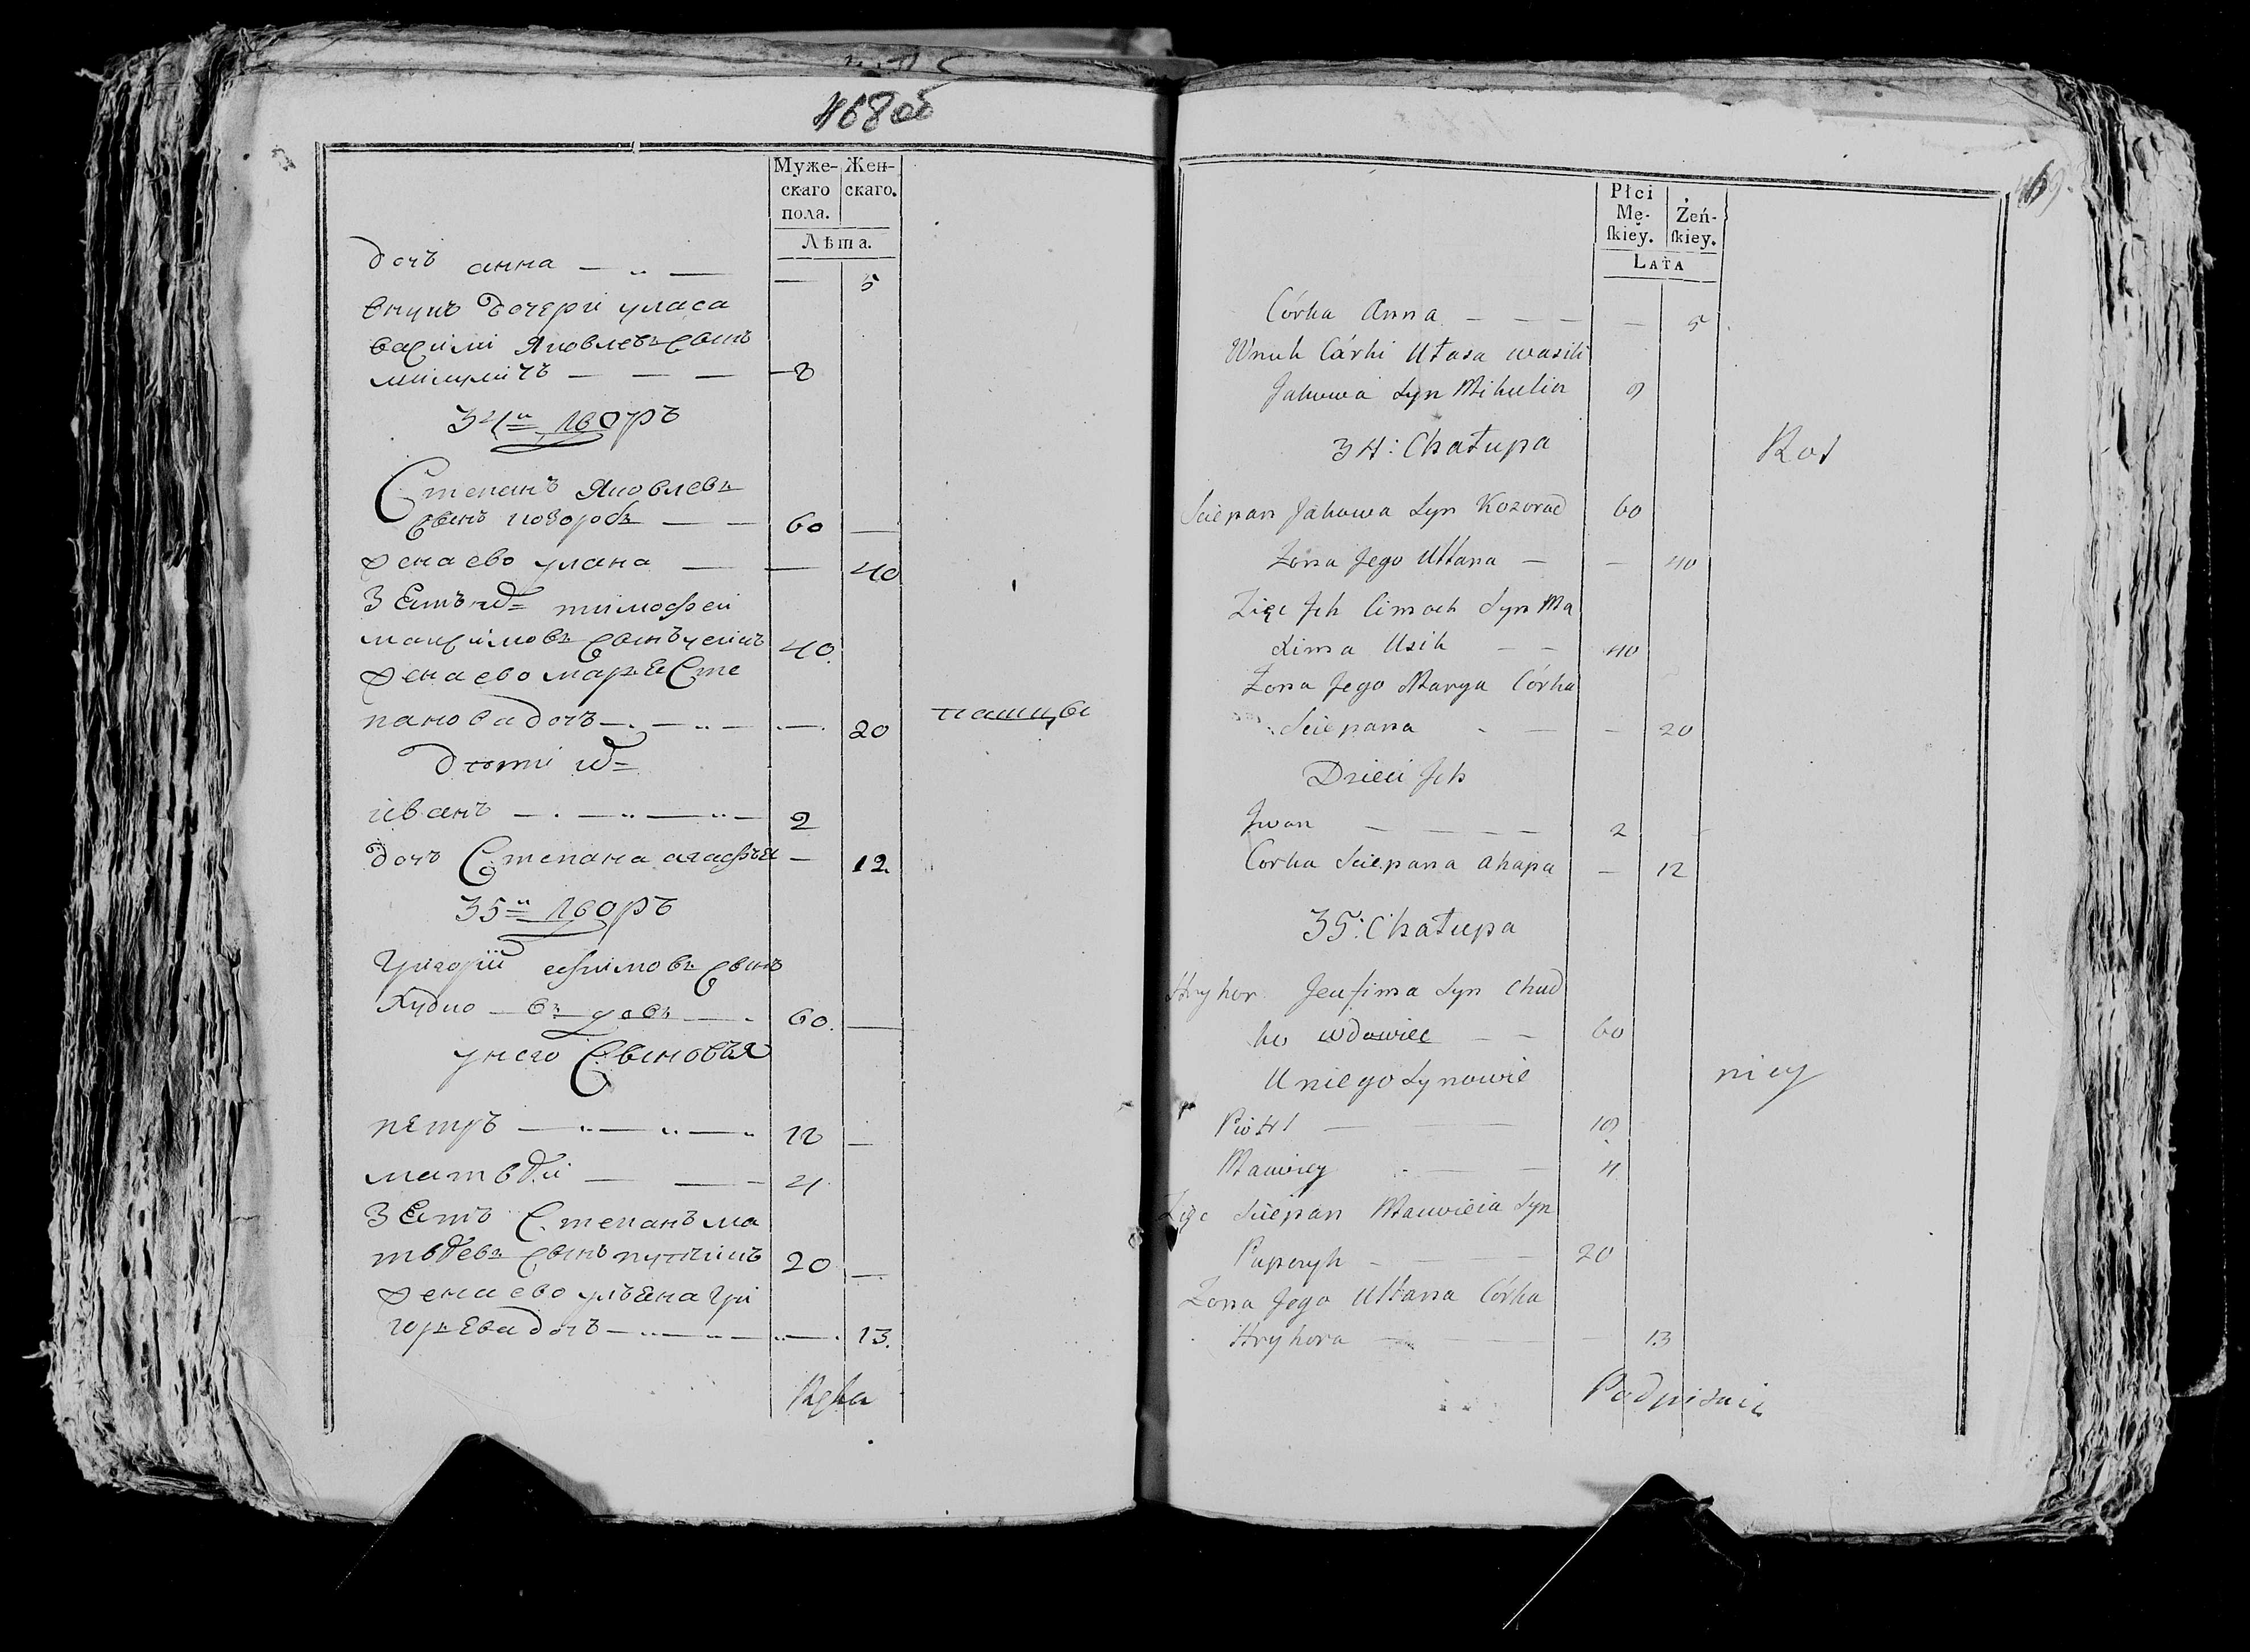 468 об
Муже-
скаго
пола.
Жен-
скаго.
Лѣта.
дочъ анна — 5
внукъ дочери уласа
васили Яковлевъ сынъ
микуличъ — 8
34й дворъ
Степанъ Яковлевъ
сынъ козоробъ — 60 —
жена ево улана — 40
зеть их тимофеи
максимовъ сынъ усикъ 40.
жена ево маря Сте
панова дочъ — 20
пашцы
дѣти их
иванъ — 2
дочъ Степана агафъя — 12.
35й дворъ
Григорий ефимовъ сынъ
Худко — вдовъ — 60. —
у него Сыновъя
петръ — 10 —
матвѣй — 4
зеть Степанъ ма
твѣевъ сынъ 20 —
жена ево улъяна гри
горева дочъ — 13.
Ręka
469.
Płci
Mę-
skiey.
Żeń-
skiey.
LATA
Córka Anna — — — — 5
Wnuk Córki Ułasa wasili
Jakowa Syn Mikulicz 9
34: Chałupa
Rot
Sciepan Jakowa Syn Kozorod 60
Żona Jego Ullana — — 40
Zięc Jch Cimoch Syn Ma
xima Usik — — 40
Żona Jego Marya Córka
Sciepana — — 20
Dzieci Jch
Jwan — — — — 2
Corka Sciepana Ahapa — 12
35: Chałupa
Hryhor Jeufima Syn Chud
ko wdowiec — — 60
U niego Synowie
nicy
Piotr — 10
Maciey — 4
Zięc Sciepan Macwieia Syn
— 20
Żona Jego Ullana Córka
Hryhora — — 13